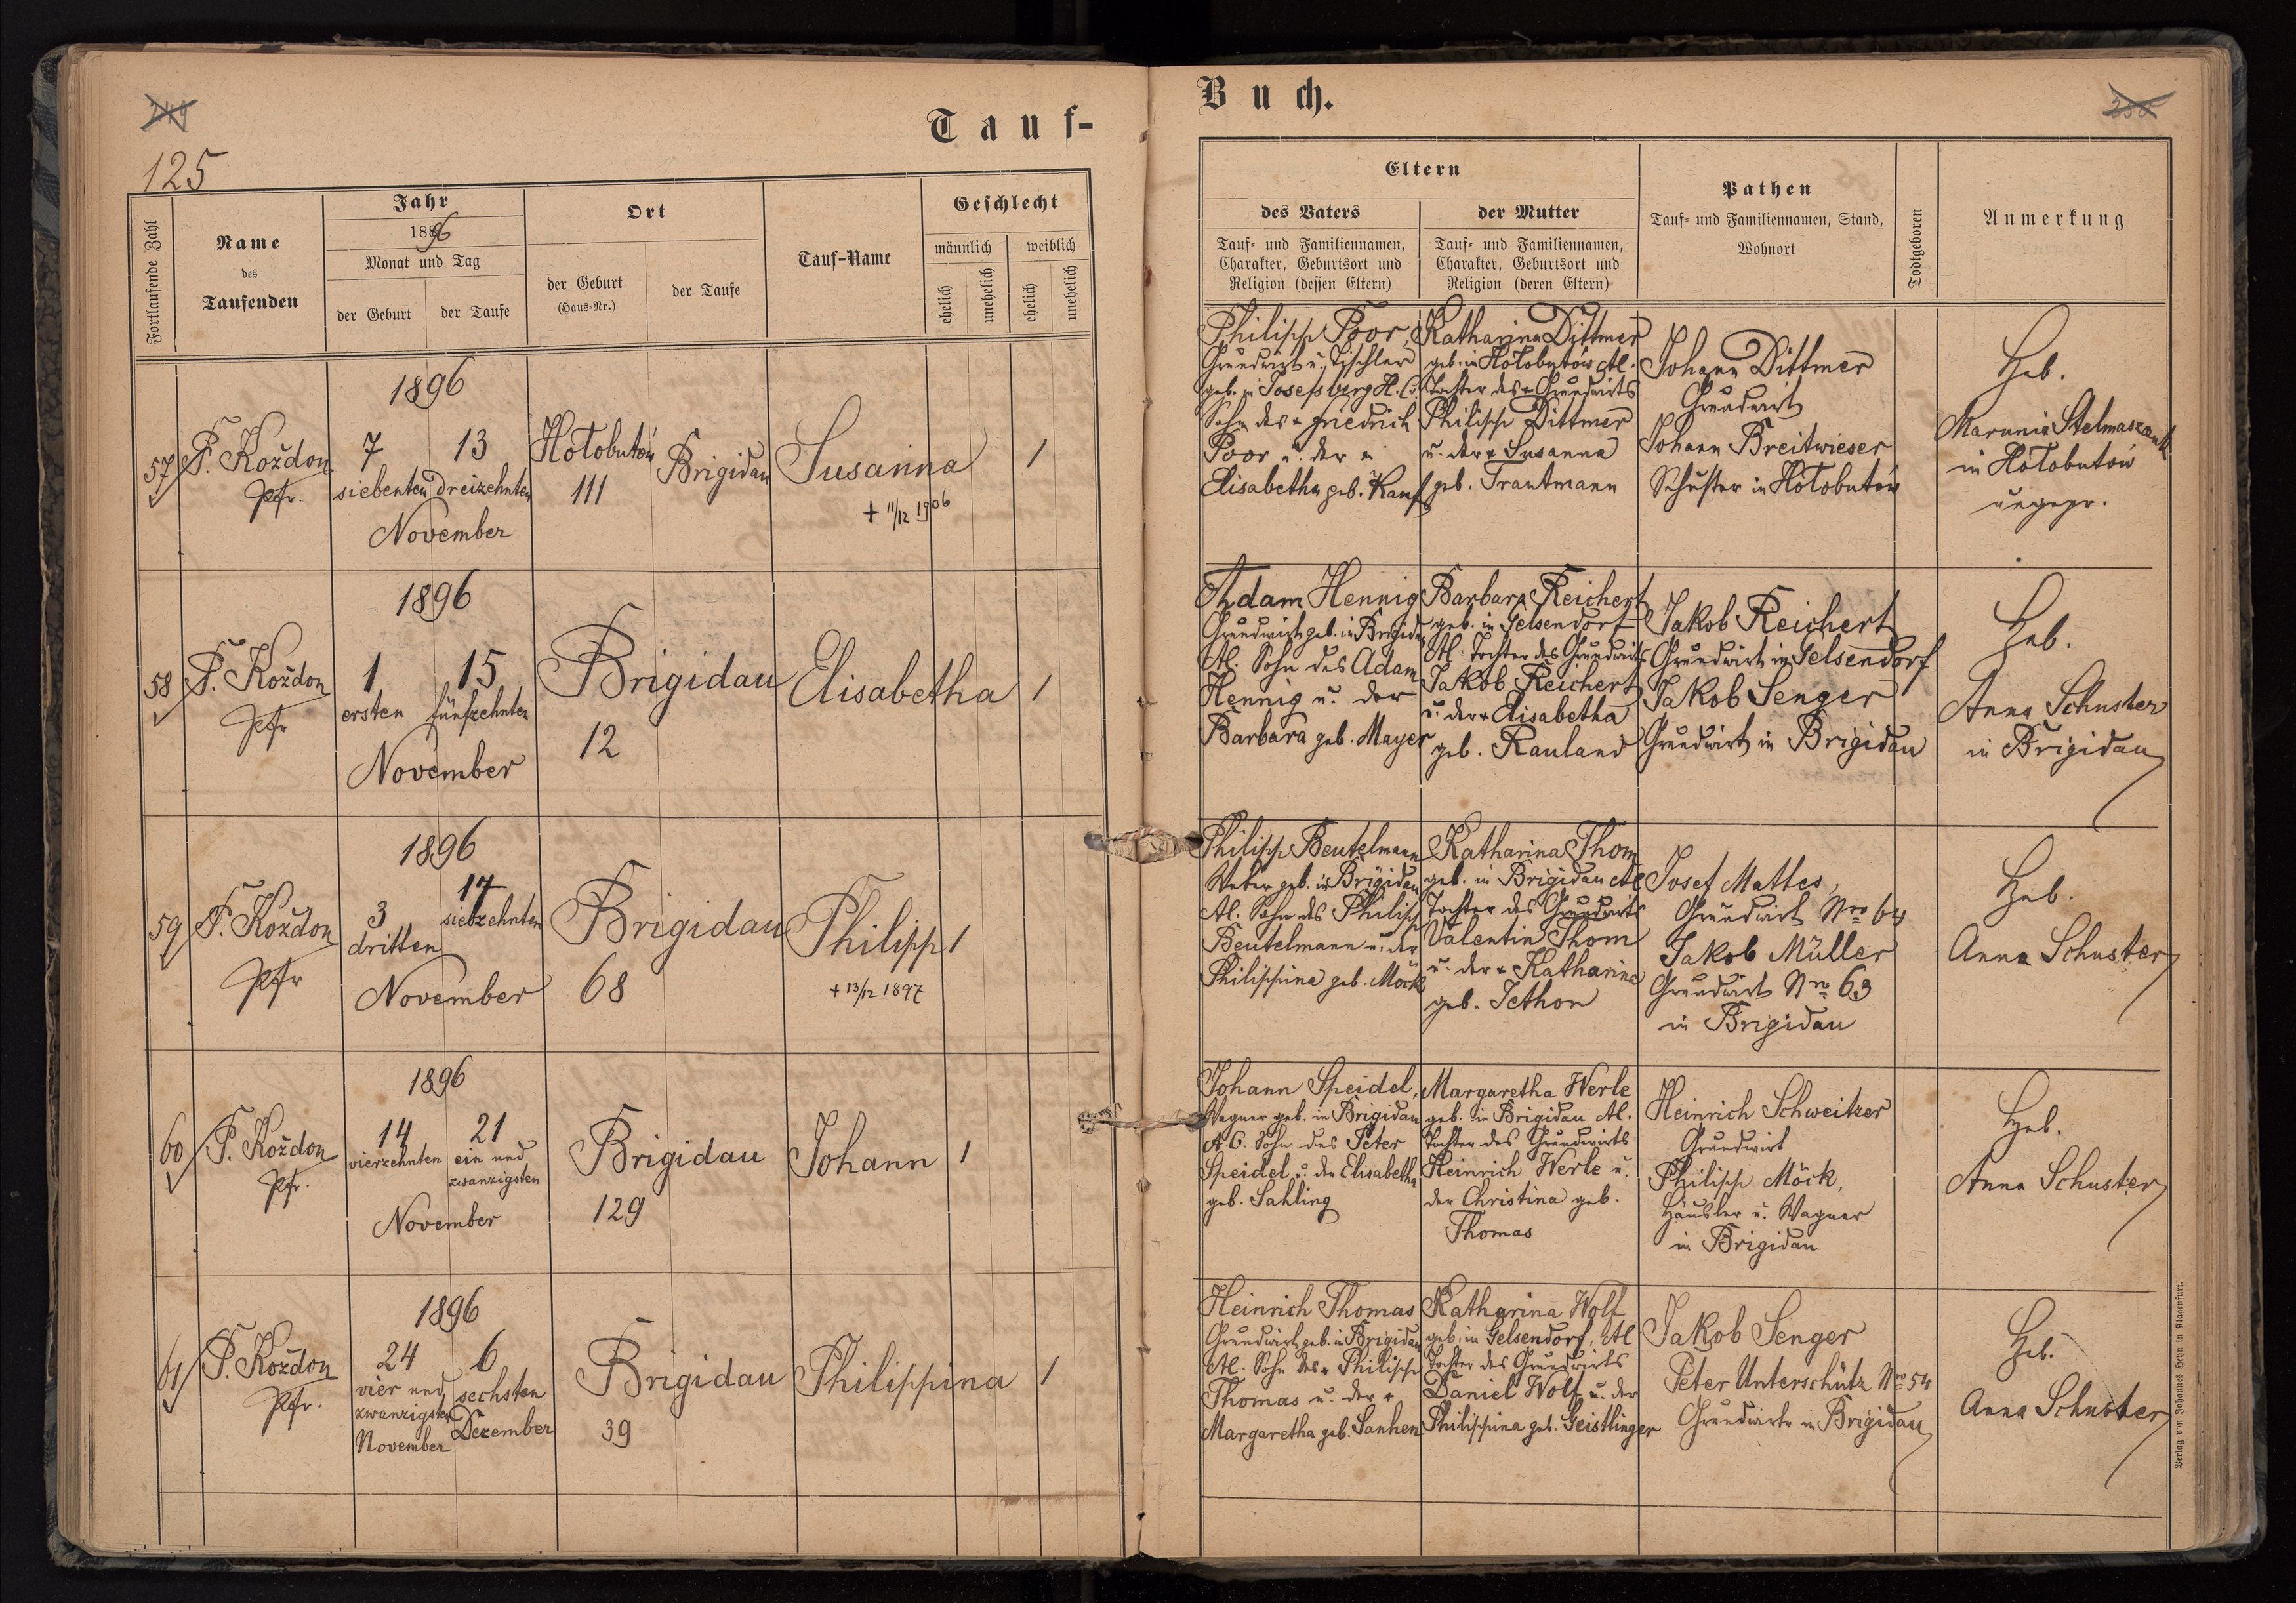 249
125
Tauf-
Buch.
250
Fortlaufende Zahl
Name
des
Taufenden
Jahr
1896
Monat und Tag
der Geburt
der Taufe
Ort
der Geburt
(Haus-Nr.)
der Taufe
Tauf-Name
Geschlecht
männlich
weiblich
ehelich
unehelich
ehelich
unehelich
Eltern
des Vaters
Tauf- und Familiennamen,
Charakter, Geburtsort und
Religion (dessen Eltern)
der Mutter
Tauf- und Familiennamen,
Charakter, Geburtsort und
Religion (deren Eltern)
Pathen
Tauf- und Familiennamen, Stand,
Wohnort
Todtgeboren
Anmerkung
57
F. Koždon
Pfr.
1896
7
siebenten
13
dreizehnten
November
Hołobutów
111
Brigidau
Susanna
+ 11/12 1906
1
Philipp Poor,
Grundwirt u. Tischler
geb. in Josefsberg H. C.
Sohn des + Friedrich
Poor u. der +
Elisabetha geb. Kauf
Katharina Dittmer
geb. in Hołobutów AC.
Tochter des + Grundwirts
Philipp Dittmer
u. der + Susanna
geb. Trautmann
Johann Dittmer
Grundwirt
Johann Breitwieser
Schuster in Hołobutów
Heb.
Marunia
in Hołobutów
ungepr.
58
F. Koždon
Pfr
1896
1
ersten
15
fünfzehnten
November
Brigidau
12
Elisabetha
1
Adam Hennig
Grundwirt geb. in Brigidau
AC. Sohn des Adam
Hennig u. der
Barbara geb. Mayer
Barbara Reichert
geb. in Gelsendorf
AC. Tochter des Grundwirts
Jakob Reichert
u. der + Elisabetha
geb. Rauland
Jakob Reichert
Grundwirt in Gelsendorf
Jakob Senger
Grundwirt in Brigidau
Heb.
Anna Schuster
in Brigidau
59
F. Koždon
Pfr
1896
3
dritten
17
siebzehnten
November
Brigidau
68
Philipp
+ 13/12 1897
1
Philipp Beutelmann
Weber geb. in Brigidau
AC. Sohn des Philipp
Beutelmann u. der
Philippina geb. Möck
Katharina Thom
geb. in Brigidau AC
Tochter des Grundwirts
Valentin Thom
u. der + Katharina
geb. Jethon
Josef Mattes,
Grundwirt Nro 64
Jakob Müller
Grundwirt Nro 63
in Brigidau
Heb.
Anna Schuster
60
F. Koždon
Pfr.
1896
14
vierzehnten
21
ein und
zwanzigsten
November
Brigidau
129
Johann
1
Johann Speidel,
Wagner geb. in Brigidau
A. C. Sohn des Peter
Speidel u. der Elisabetha
geb. Sahling
Margaretha Werle
geb. in Brigidau AC.
Tochter des Grundwirts
Heinrich Werle u.
der Christina geb.
Thomas
Heinrich Schweitzer
Grundwirt
Philipp Möck,
Häusler u. Wagner
in Brigidau
Heb.
Anna Schuster
61
F. Koždon
Pfr.
1896
24
vier und
zwanzigsten
November
6
sechsten
Dezember
Brigidau
39
Philippina
1
Heinrich Thomas
Grundwirt geb. in Brigidau
AC. Sohn des + Philipp
Thomas u. der +
Margaretha geb. Sanhen
Katharina Wolf
geb. in Gelsendorf, AC
Tochter des Grundwirts
Daniel Wolf u. der
Philippina geb. Geistlinger
Jakob Senger
Peter Unterschütz Nro 54
Grundwirte in Brigidau
Heb.
Anna Schuster
Verlag von Johannes Heyn in Klagenfurt.